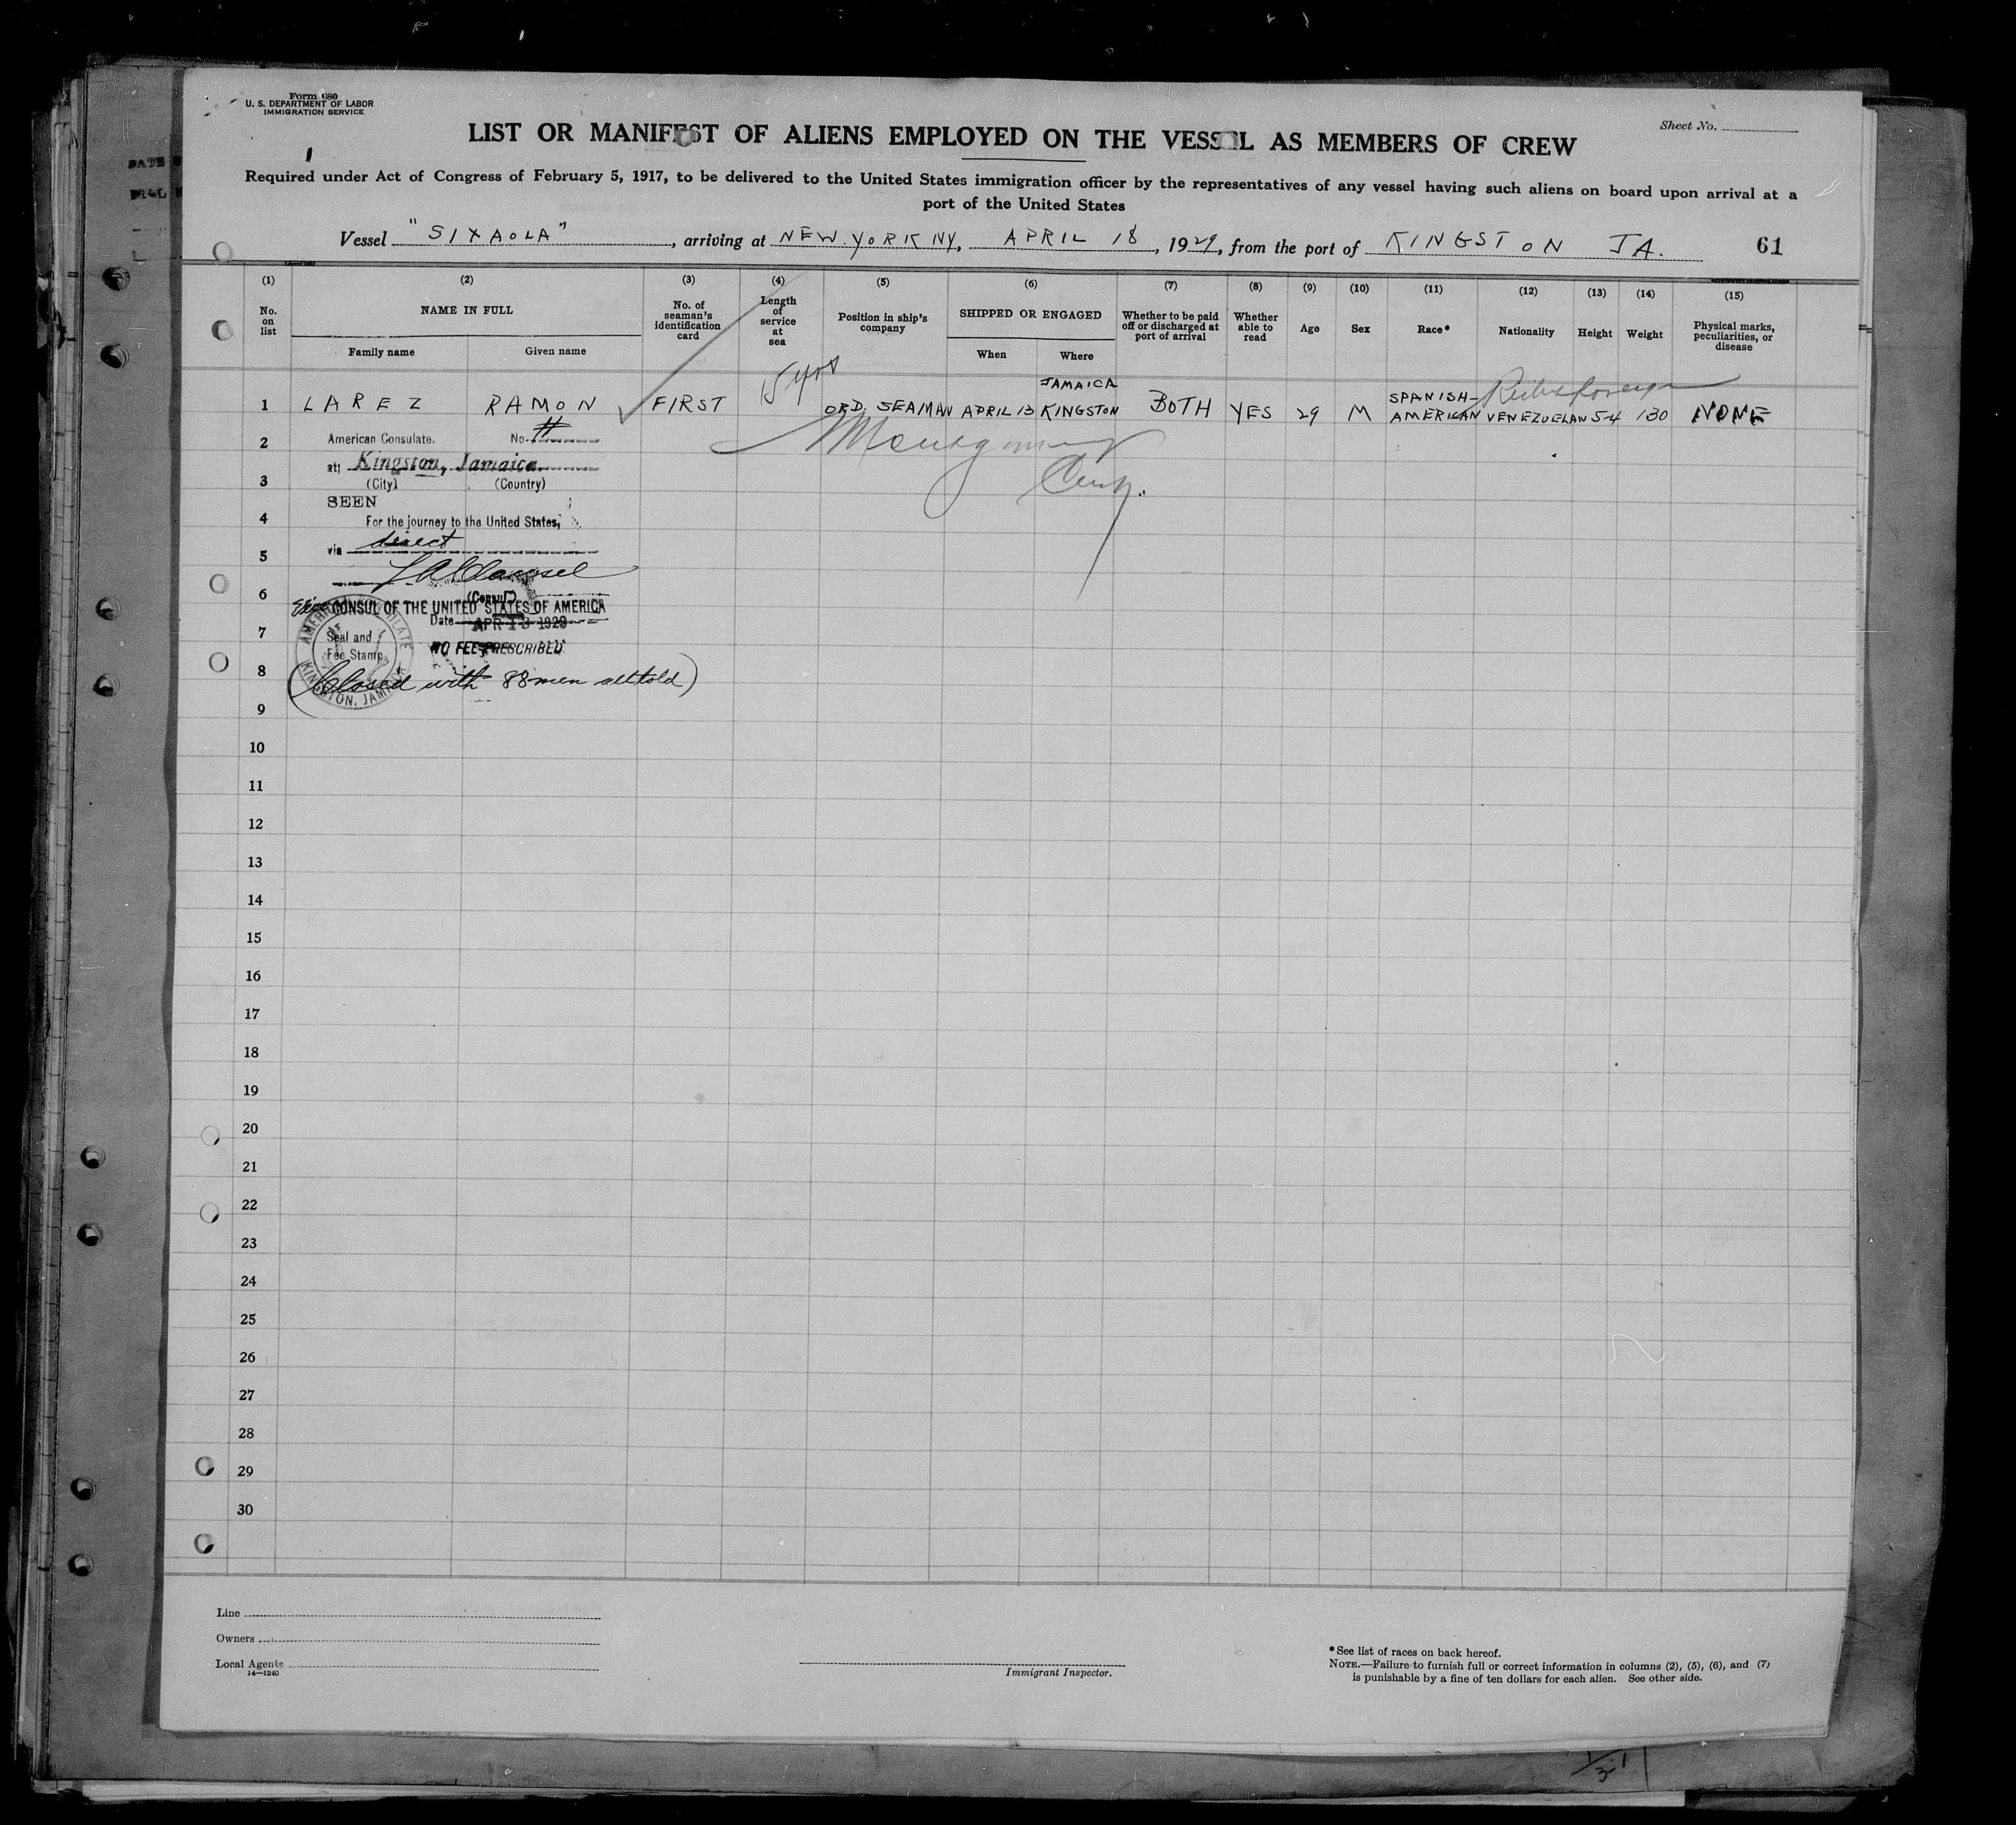 Form 680
U. S. DEPARTMENT OF LABOR
IMMIGRATION SERVICE
Sheet No.
LIST OR MANIFEST OF ALIENS EMPLOYED ON THE VESSEL AS MEMBERS OF CREW
Required under Act of Congress of February 5, 1917, to be delivered to the United States immigration officer by the representatives of any vessel having such aliens on board upon arrival at a
port of the United States
Vessel "SIXAOLA", arriving at NEW YORK NY, APRIL 18, 1929, from the port of KINGSTON JA. 61
(1) (2) (3) (4) (5) (6) (7) (8) (9) (10) (11) (12) (13) (14) (15)
No. on list
NAME IN FULL
Family name Given name
No. of seaman's identification card
Length of service at sea
Position in ship's company
SHIPPED OR ENGAGED
When Where
Whether to be paid off or discharged at port of arrival
Whether able to read
Age
Sex
Race*
Nationality
Height
Weight
Physical marks, peculiarities, or disease
1 LAREZ RAMON FIRST 5 yrs ORD. SEAMAN APRIL 13 JAMAICA KINGSTON BOTH YES 29 M SPANISH-AMERICAN VENEZUELAN 54 130 NONE
2
American Consulate. No.
Montgomery
at; Kingston, Jamaica.
3
(City) (Country)
SEEN
4
For the journey to the United States,
via direct
5
6
(Consul)
Vice CONSUL OF THE UNITED STATES OF AMERICA
Date APR 13 1929
7
Seal and
Fee Stamp
NO FEE PRESCRIBED.
AMERICAN CONSULATE
KINGSTON, JAMAICA
8
(Closed with 88 men all told)
9
10
11
12
13
14
15
16
17
18
19
20
21
22
23
24
25
26
27
28
29
30
Line
Owners
Local Agents
14—1240
Immigrant Inspector.
*See list of races on back hereof.
NOTE.—Failure to furnish full or correct information in columns (2), (5), (6), and (7)
is punishable by a fine of ten dollars for each alien. See other side.